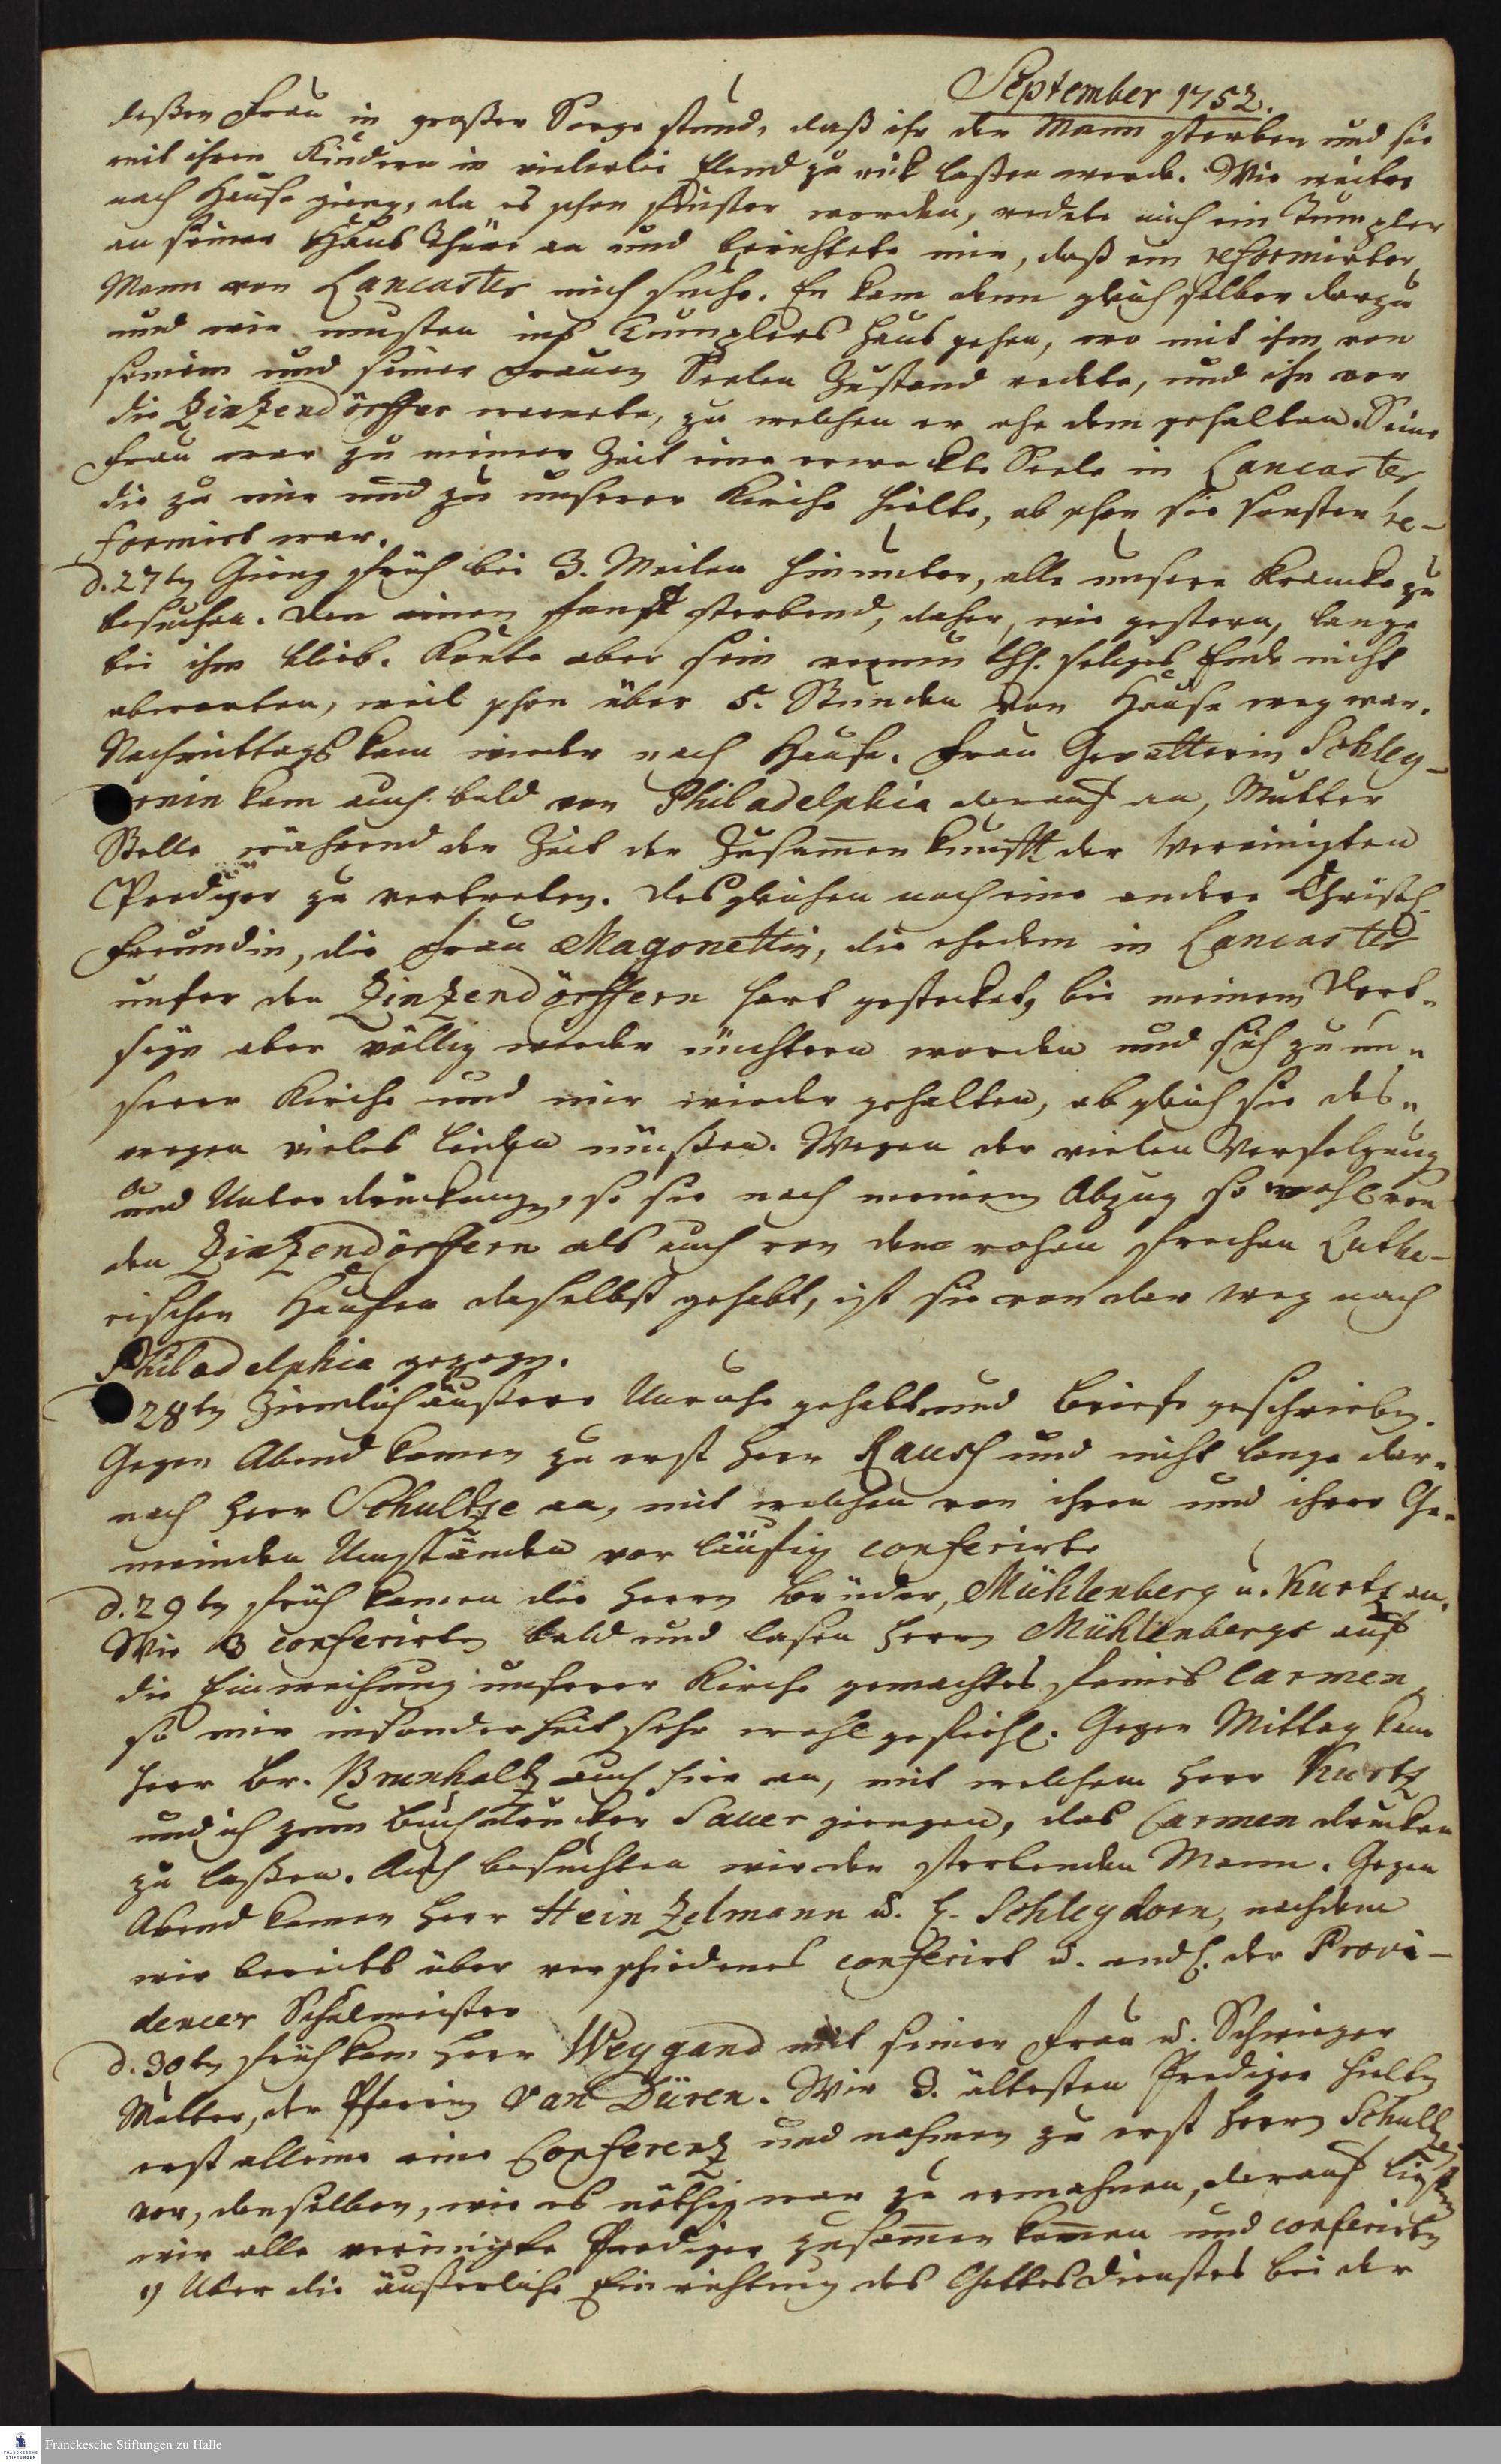 September 1752.
deßen Frau in großer Sorge stund, daß ihr der Mann sterben und sie
mit ihren Kindern in vielerlei Elend zurück laßen werde. Wie wieder
nach Hause gieng, da es schon finster worden, redete mich ein Tumpler
an seiner Haus Thüre an und berichtete mir, daß ein reformirter
Mann von Lancaster mich suche. Er kam denn gleich selber darzu
und wir musten ins Tumplers Haus gehen, wo mit ihm von
seinem und seiner Frauen Seelen Zustand redete, und ihn vor
die Zinzendörffer warnete, zu welchen er ehe dem gehalten. Seine
Frau war zu meiner Zeit eine erweckte Seele in Lancaster
die zu mir und zu unserer Kirche hielte, ob schon sie sonsten re-
formirt war.
d. 27ten Gieng früh bei 3. Meilen hinunter, alle unsere Krancke zu
besuchen. Den einen fand sterbend, daher, wie gestern, lange
bei ihm blieb. Konte aber sein vermuthl. seliges Ende nicht
abwarten, weil schon über 5. Stunden von Hause weg war.
Nachmittags kam wieder nach Hause. Frau Gevatterin Schley-
ornin kam auch bald von Philadelphia darauf an, Mutter
Stelle während der Zeit der Zusam̄enkunfft der Vereinigten
Prediger zu vertreten. Desgleichen noch eine andere Christl.
Freundin, die Frau Magonettin, die ehedem in Lancaster
unter den Zinzendörffern hart gestecket, bei meinem Dort-
seyn aber völlig wieder nüchtern worden und sich zu un-
serer Kirche und mir wieder gehalten, ob gleich sie des-
wegen vieles leiden müßen. Wegen der vielen Verfolgung
und Unterdrückung, so sie nach meinem Abzug so wohl von
den Zinzendörffern als auch von dem rohen frechen Luthe-
rischen Haufen daselbst gehabt, ist sie von dar weg nach
Philadelphia gezogen.
28ten Ziemlich äußere Unruhe gehabt und Briefe geschrieben.
Gegen Abend kamen zu erst Herr Rausch und nicht lange dar-
nach Herr Schultze an, mit welchen von ihren und ihrer Ge-
meinden Umständen vorläufig conferirte
d. 29ten früh kamen die Herrn Brüder, Mühlenberg u. Kurtz an.
Wir 3 conferirten bald und lasen Herrn Mühlenbergs auf
die Einweihung unserer Kirche gemachtes feines Carmen,
so mir insonderheit sehr wohl gefiehl. Gegen Mittag kam
Herr Br. Brunholtz auch hier an, mit welchem Herr Kurtz
und ich zum Buchdrucker Sauer giengen, das Carmen drucken
zu laßen. Auch besuchten wir den sterbenden Mann. Gegen
Abend kamen Herr Heinzelmann u. H. Schleydorn, nachdem
wir bereits über verschiedenes conferirt u. endl. der Provi-
dencer Schulmeister
d. 30ten früh kam Herr Weygand mit seiner Frau u. Schwieger
Mutter, der Pfarrin van Düren. Wir 3. ältesten Prediger hielten
erst alleine eine Conferentz und nahmen zu erst Herrn Schultze
vor, denselben, wie es nöthig war zu ermahnen, darauf ließen
wir alle vereinigte Prediger zusam̄en kom̄en und conferirten
1) Über die äußerliche Einrichtung des Gottesdienstes bei der
Franckesche Stiftungen zu Halle